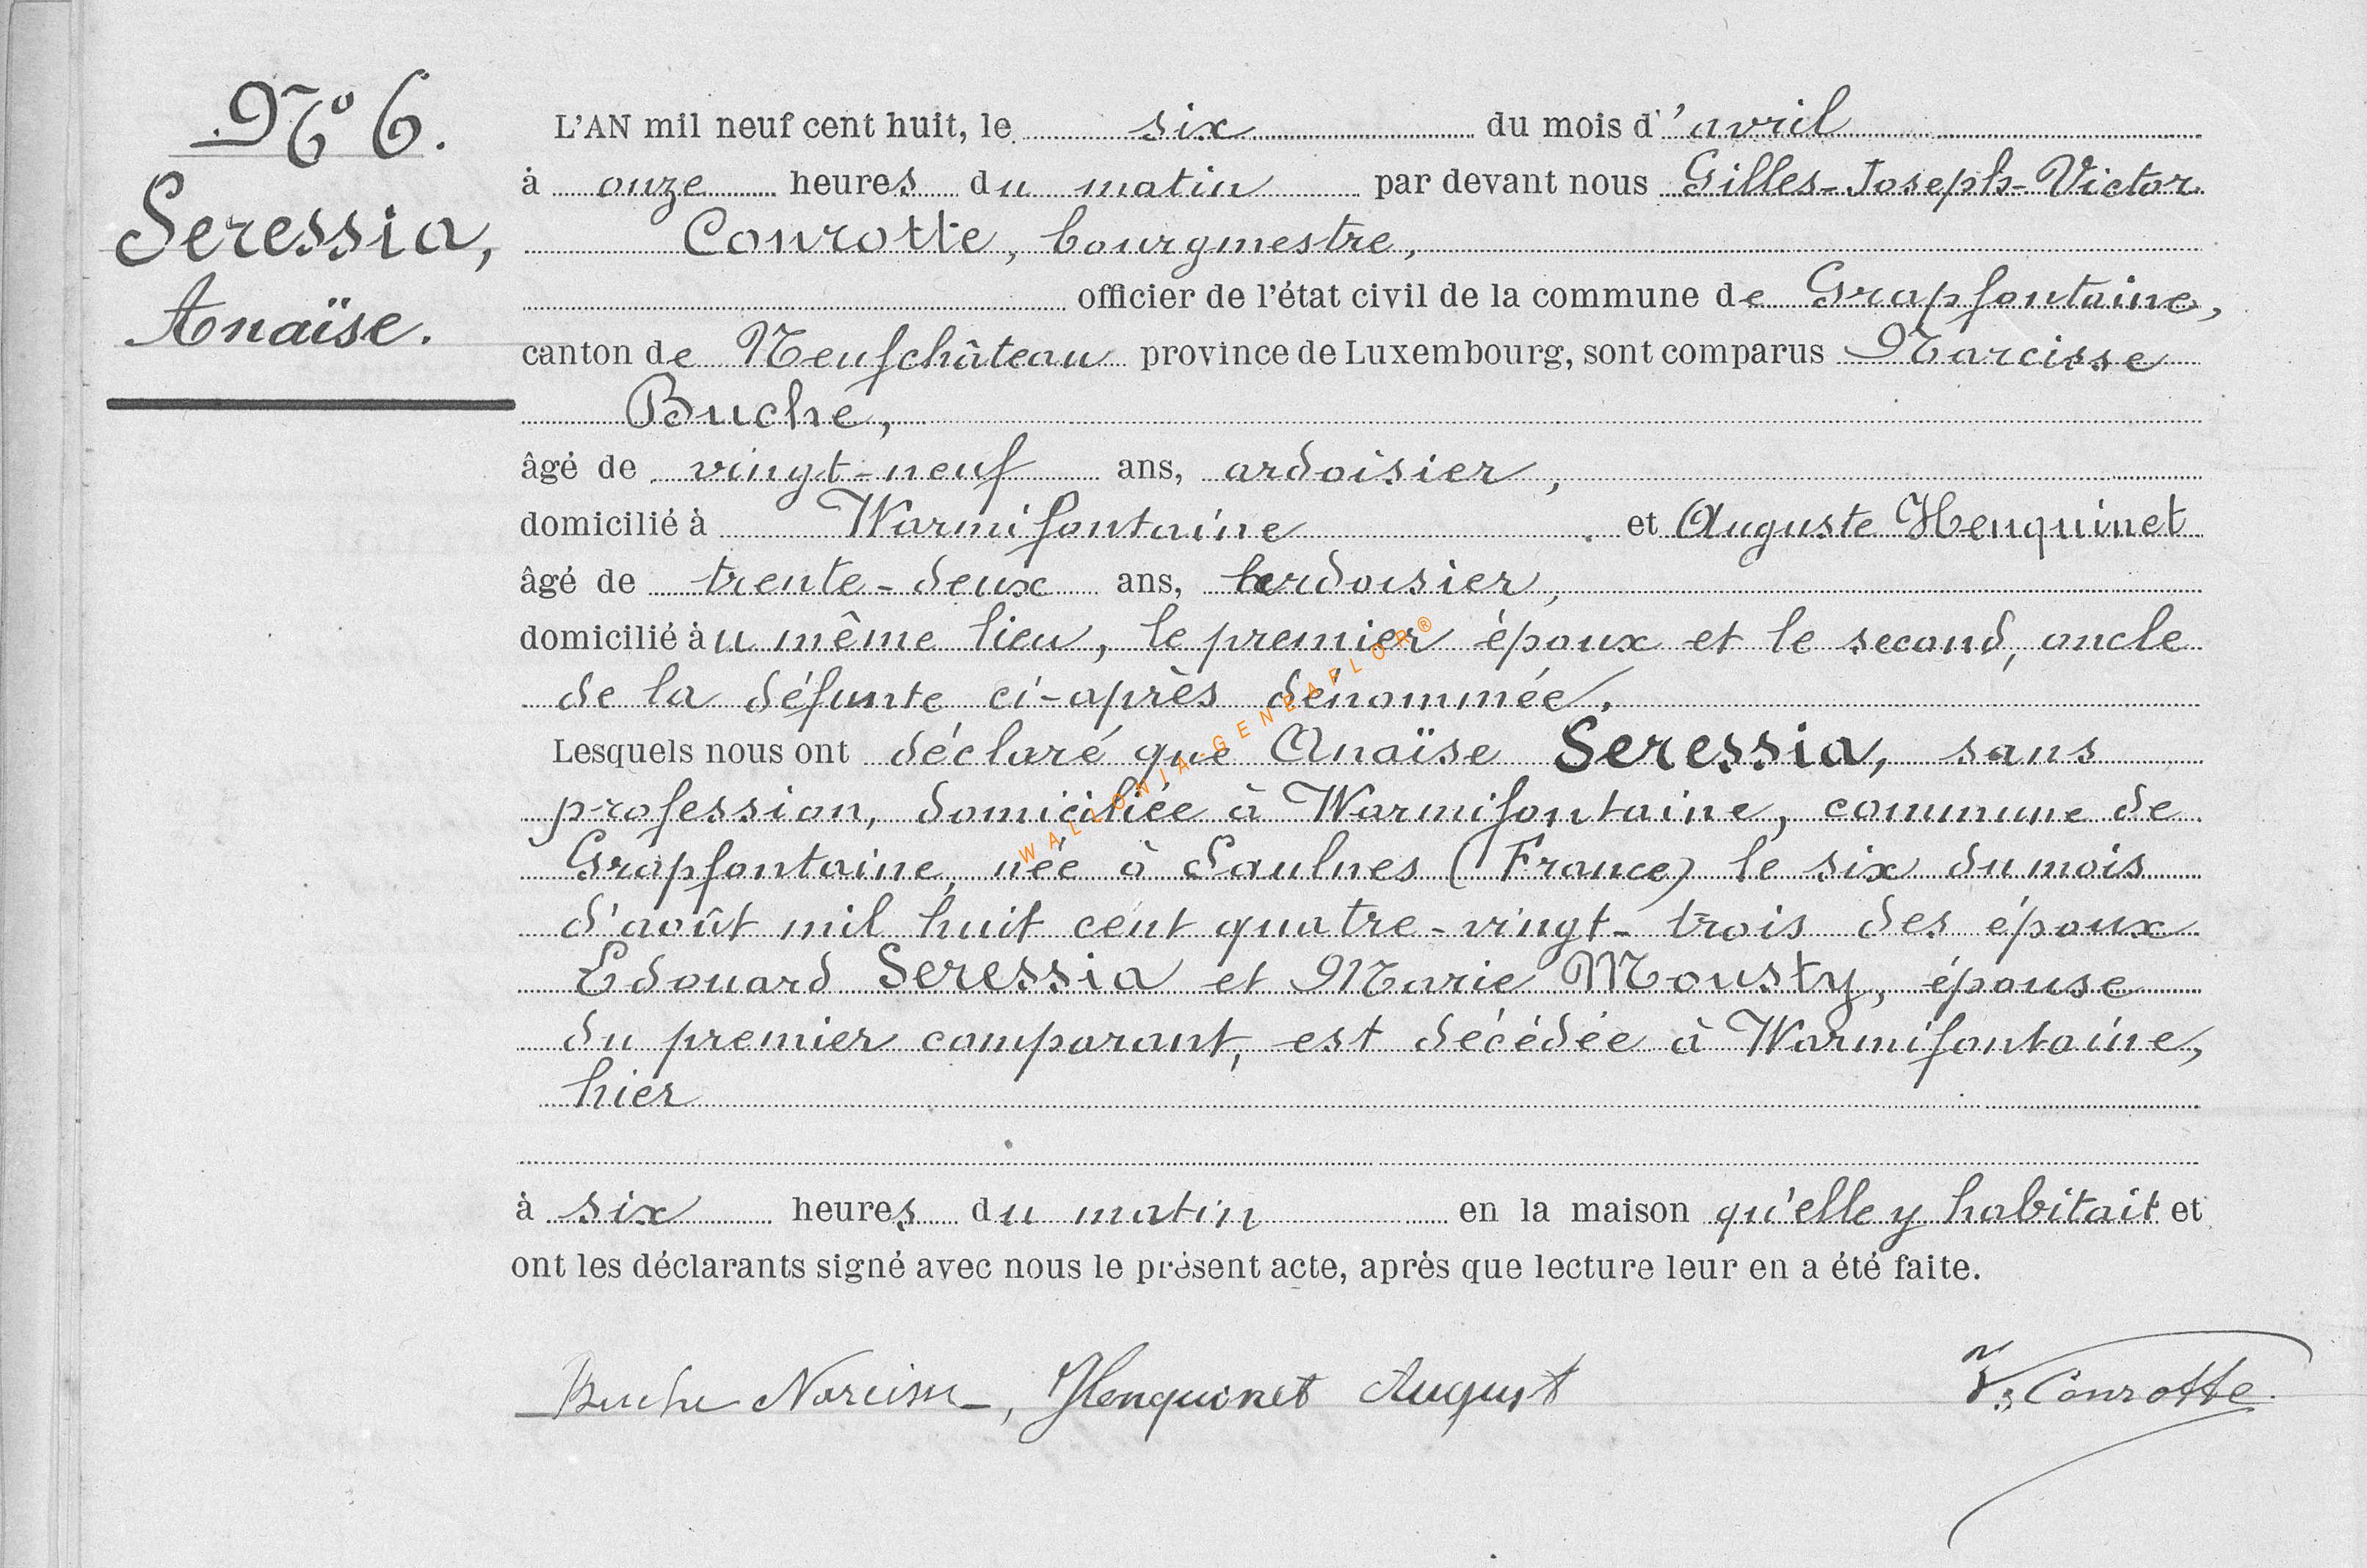 N° 6.
Seressia,
Anaïse.
L'AN mil neuf cent huit, le six du mois d'avril
à onze heures du matin par devant nous Gilles-Joseph-Victor
Conrotte, bourgmestre,
officier de l'état civil de la commune de Grapfontaine,
canton de Neufchâteau province de Luxembourg, sont comparus Narcisse
Buché,
âgé de vingt-neuf ans, ardoisier,
domicilié à Warmifontaine et Auguste Henquinet
âgé de trente-deux ans, ardoisier,
domicilié au même lieu, le premier époux et le second, oncle
de la défunte ci-après dénommée.
Lesquels nous ont déclaré que Anaïse Seressia, sans
profession, domiciliée à Warmifontaine, commune de
Grapfontaine, née à Saulnes (France) le six du mois
d'août mil huit cent quatre-vingt-trois des époux
Edouard Seressia et Marie Mousty, épouse
du premier comparant, est décédée à Warmifontaine,
hier
à six heures du matin en la maison qu'elle y habitait et
ont les déclarants signé avec nous le présent acte, après que lecture leur en a été faite.
Buche Narcisse, Henquinet August V. Conrotte
WALLONIA-GENEAFLOR®